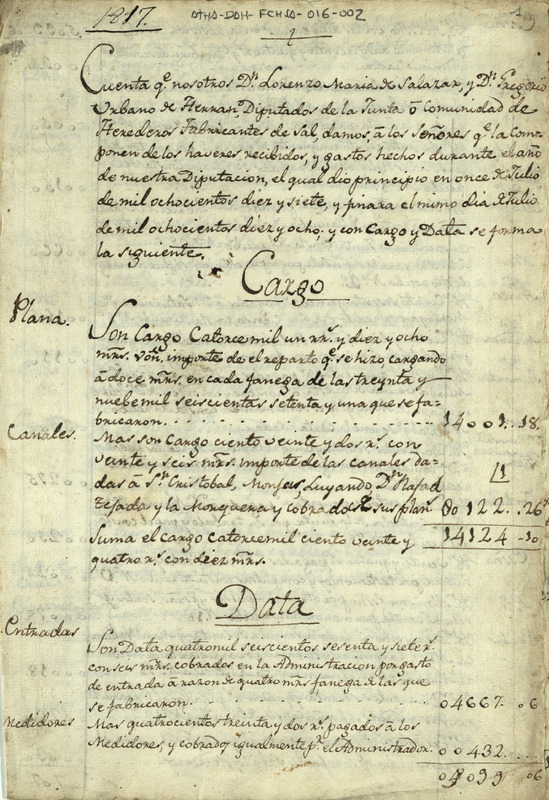 1817.
ATHA-DAH-FCHSA-016-002
1
Cuenta q.e nosotros D.n Lorenzo Maria de Salazar, y D.n Gregorio
Urbano de Herran, Diputados de la Junta ó Comunidad de
Herederos Fabricantes de Sal, damos, á los Señores q.e la Com-
ponen de los haveres recibidos, y gastos hechos durante el año
de nuestra Diputacion, el qual dio principio en once de Julio
de mil ochocientos diez y siete, y finara el mismo dia de Julio
de mil ochocientos diez y ocho, y con Cargo y Data se forma
la siguiente.
Cargo
Plana.
Son Cargo Catorce mil un rr.s y diez y ocho
mrs. von, importe de el reparto q.e se hizo cargando
á doce mrs. en cada fanega de las treynta y
nuebe mil seiscientas setenta y una que se fa-
bricaron. 14001. .18.
Canales.
Mas son Cargo ciento veinte y dos r.s con
veinte y seis mrs. importe de las canales da-
das á S.n Cristobal, Monjas, Luyando D.n Rafael
Tejada y la Monquera y cobrado de sus plan.s 00122. .26
Suma el cargo catorce mil ciento veinte y
quatro r.s con diez mrs. 14124 -10
Data
Entradas
Son Data quatro mil seiscientos sesenta y siete r.s
con seis mrs. cobrados en la Administracion por gasto
de entrada á razon de quatro mrs fanega de las que
se fabricaron. 04667. .06
Medidores
Mas quatrocientos treinta y dos r.s pagados á los
Medidores, y cobrados igualmente p.r el Administrador. 00432.
05099 06